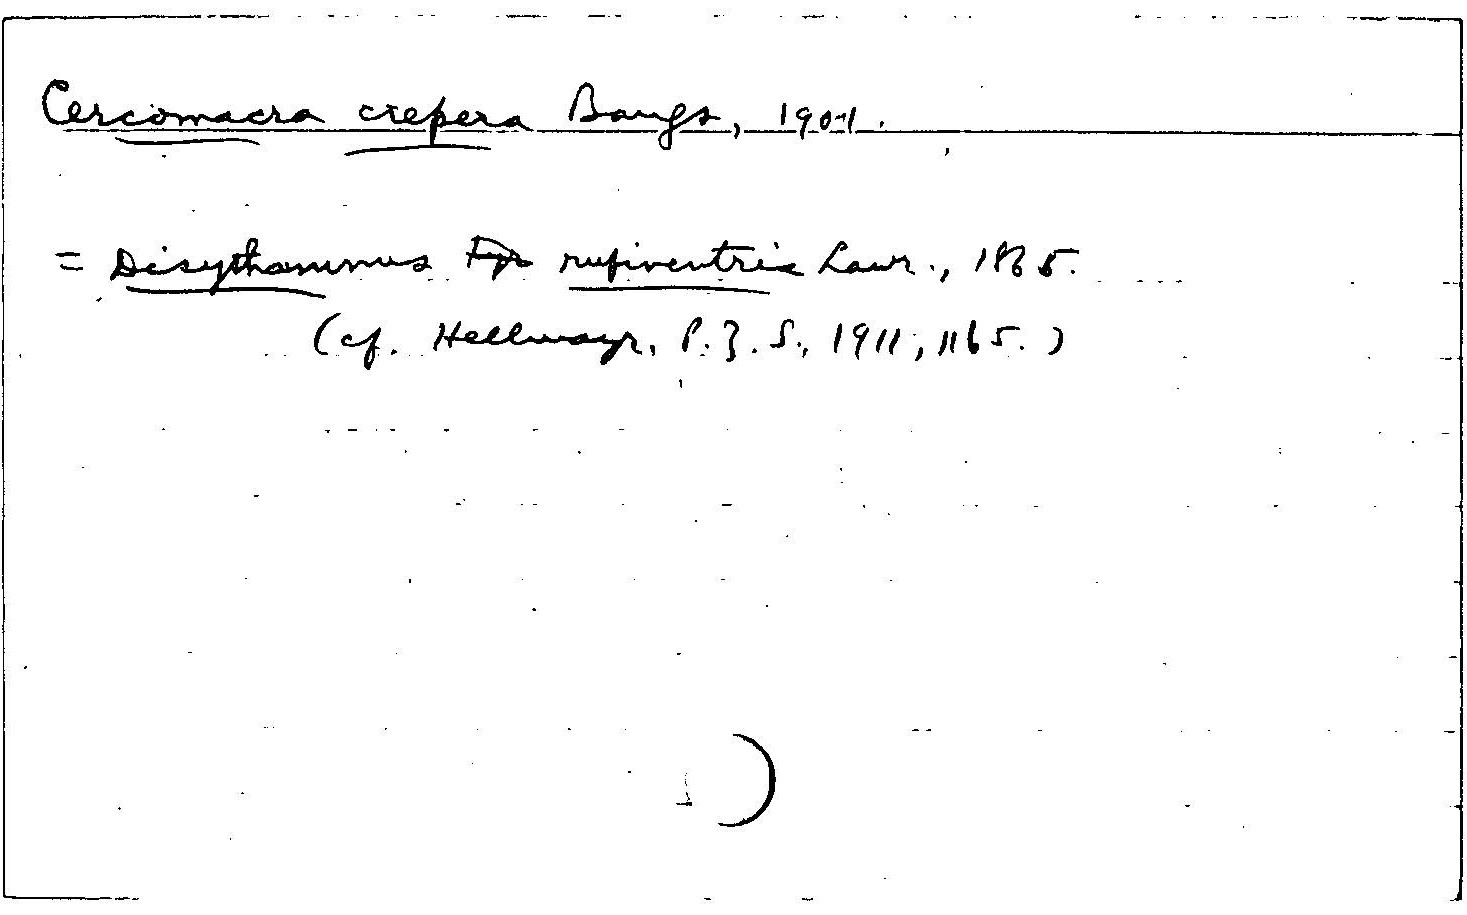 Cercomacra crepera Bangs, 1901.
= Disythamnus rufiventris Lawr., 1865.
(cf. Hellmayr, P. Z. S., 1911, 1165.)